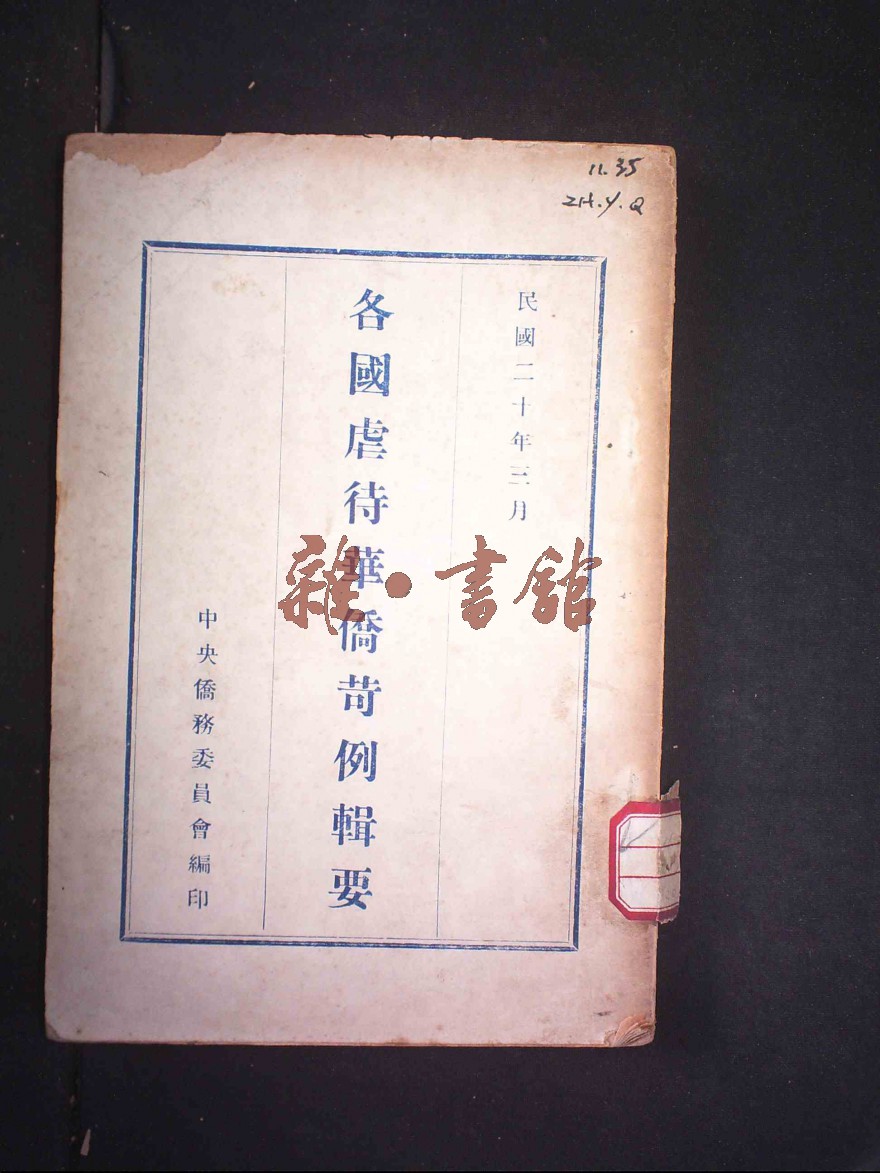 11.35
民國二十年三月
各國虐待華僑苛例輯要
中央僑務委員會編印
雜·書館